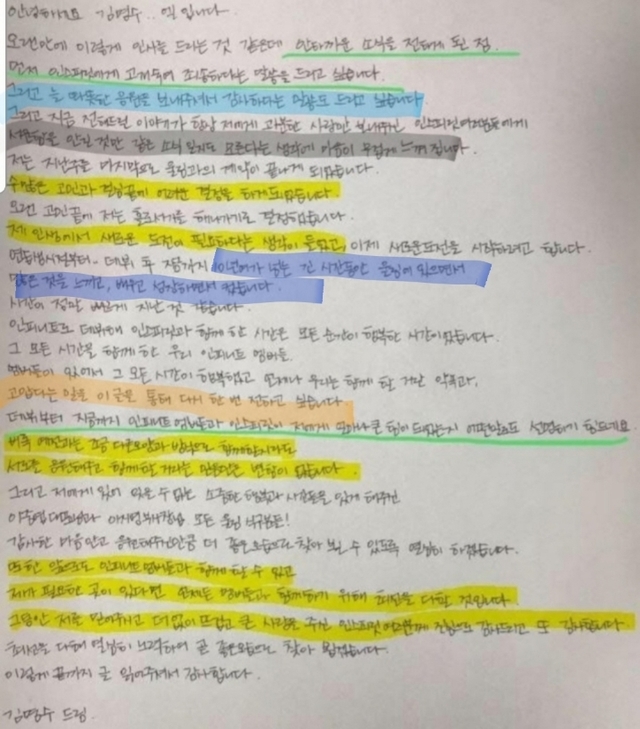 안녕하세요 김명수.. 엘 입니다
오랜만에 이렇게 인사를 드리는 것 같은데 안타까운 소식을 전하게 된 점
먼저 인스피릿에게 고개숙여 죄송하다는 말씀을 드리고 싶습니다.
그리고 늘 따뜻한 응원을 보내주셔서 감사하다는 말씀도 드리고 싶습니다
그리고 지금 전해드릴 이야기가 항상 저에게 과분한 사랑만 보내주신 인스피릿여러분들에게
서운함을 안길 것만 같은 소식 일지도 모른다는 생각에 마음이 무겁게 느껴집니다.
저는 지난주를 마지막으로 울림과의 계약이 끝나게 되었습니다
수많은 고민과 결심끝에 어려운 결정을 하게되었습니다
오랜 고민끝에 저는 홀로서기를 해나가기로 결정했습니다.
제 인생에서 새로운 도전이 필요하다는 생각이 들었고, 이제 새로운도전을 시작하려고 합니다.
연습생시절부터- 데뷔 후 지금까지 10년여가 넘은 긴 시간동안 울림에 있으면서
많은 것을 느끼고, 배우고 성장하면서 컸습니다.
시간이 정말 빠르게 지난 것 같습니다.
인피니트로 데뷔해 인스피릿과 함께 한 시간은 모든 순간이 행복한 시간이었습니다.
그 모든 시간을 함께 한 우리 인피니트 멤버들.
멤버들이 있어서 그 모든 시간이 행복했고 언제나 우리는 함께 할 거란 약속과,
고맙다는 말을 이 글을 통해 다시 한 번 전하고 싶습니다
데뷔부터 지금까지 인피니트 멤버들과 인스피릿이 저에게 얼마나 큰 힘이 되었는지 어떤말로도 설명하기 힘드네요.
비록 예전과는 조금 다른모양과 방식으로 함께할지라도
서로를 응원해주고 함께할 거라는 믿음만은 변함이 없습니다.
그리고 저에게 있어 잊을 수 없는 소중한 행복과 시간들을 있게 해주신
이중엽 대표님과 이사님 부사장님 모든 울림 식구분들!
감사한 마음안고 응원해주신만큼 더 좋은모습으로 찾아 뵐 수 있도록 열심히 하겠습니다.
또한 앞으로도 인피니트 멤버들과 함께 할 수 있고
제가 필요한 곳이 있다면 언제든 멤버들과 함께하기 위해 최선을 다할 것입니다
그동안 저를 믿어주고 더없이 뜨겁고 큰 사랑을 주신 인스피릿 여러분께 진심으로 감사드리고 또 감사합니다.
최선을 다해 열심히 노력하여 곧 좋은모습으로 찾아 뵙겠습니다.
이렇게 끝까지 글 읽어주셔서 감사합니다.
김명수 드림.